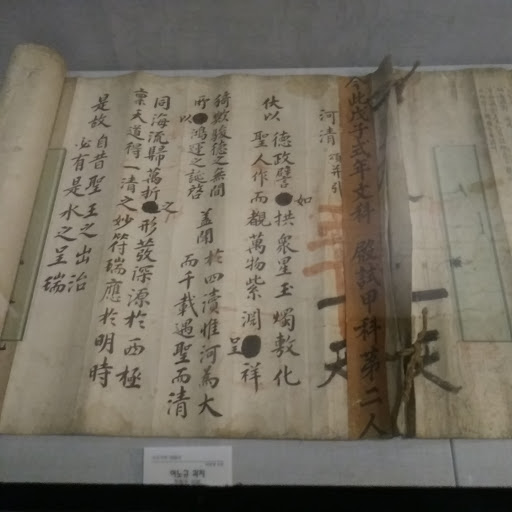 今此戊子式年文科 殿試甲科第二人
河清 頌并引
一天
伏以 德政譬如拱衆星玉燭敷化
聖人作而觀萬物紫淵呈祥
猗歟駿德之無間 蓋聞於四瀆惟河爲大
所以鴻運之誕啓 而千載遇聖而清
同海流歸萬折之形發深源於西極
稟天道得一清之妙符瑞應於明時
是故自昔聖王之出治
必有是水之呈瑞